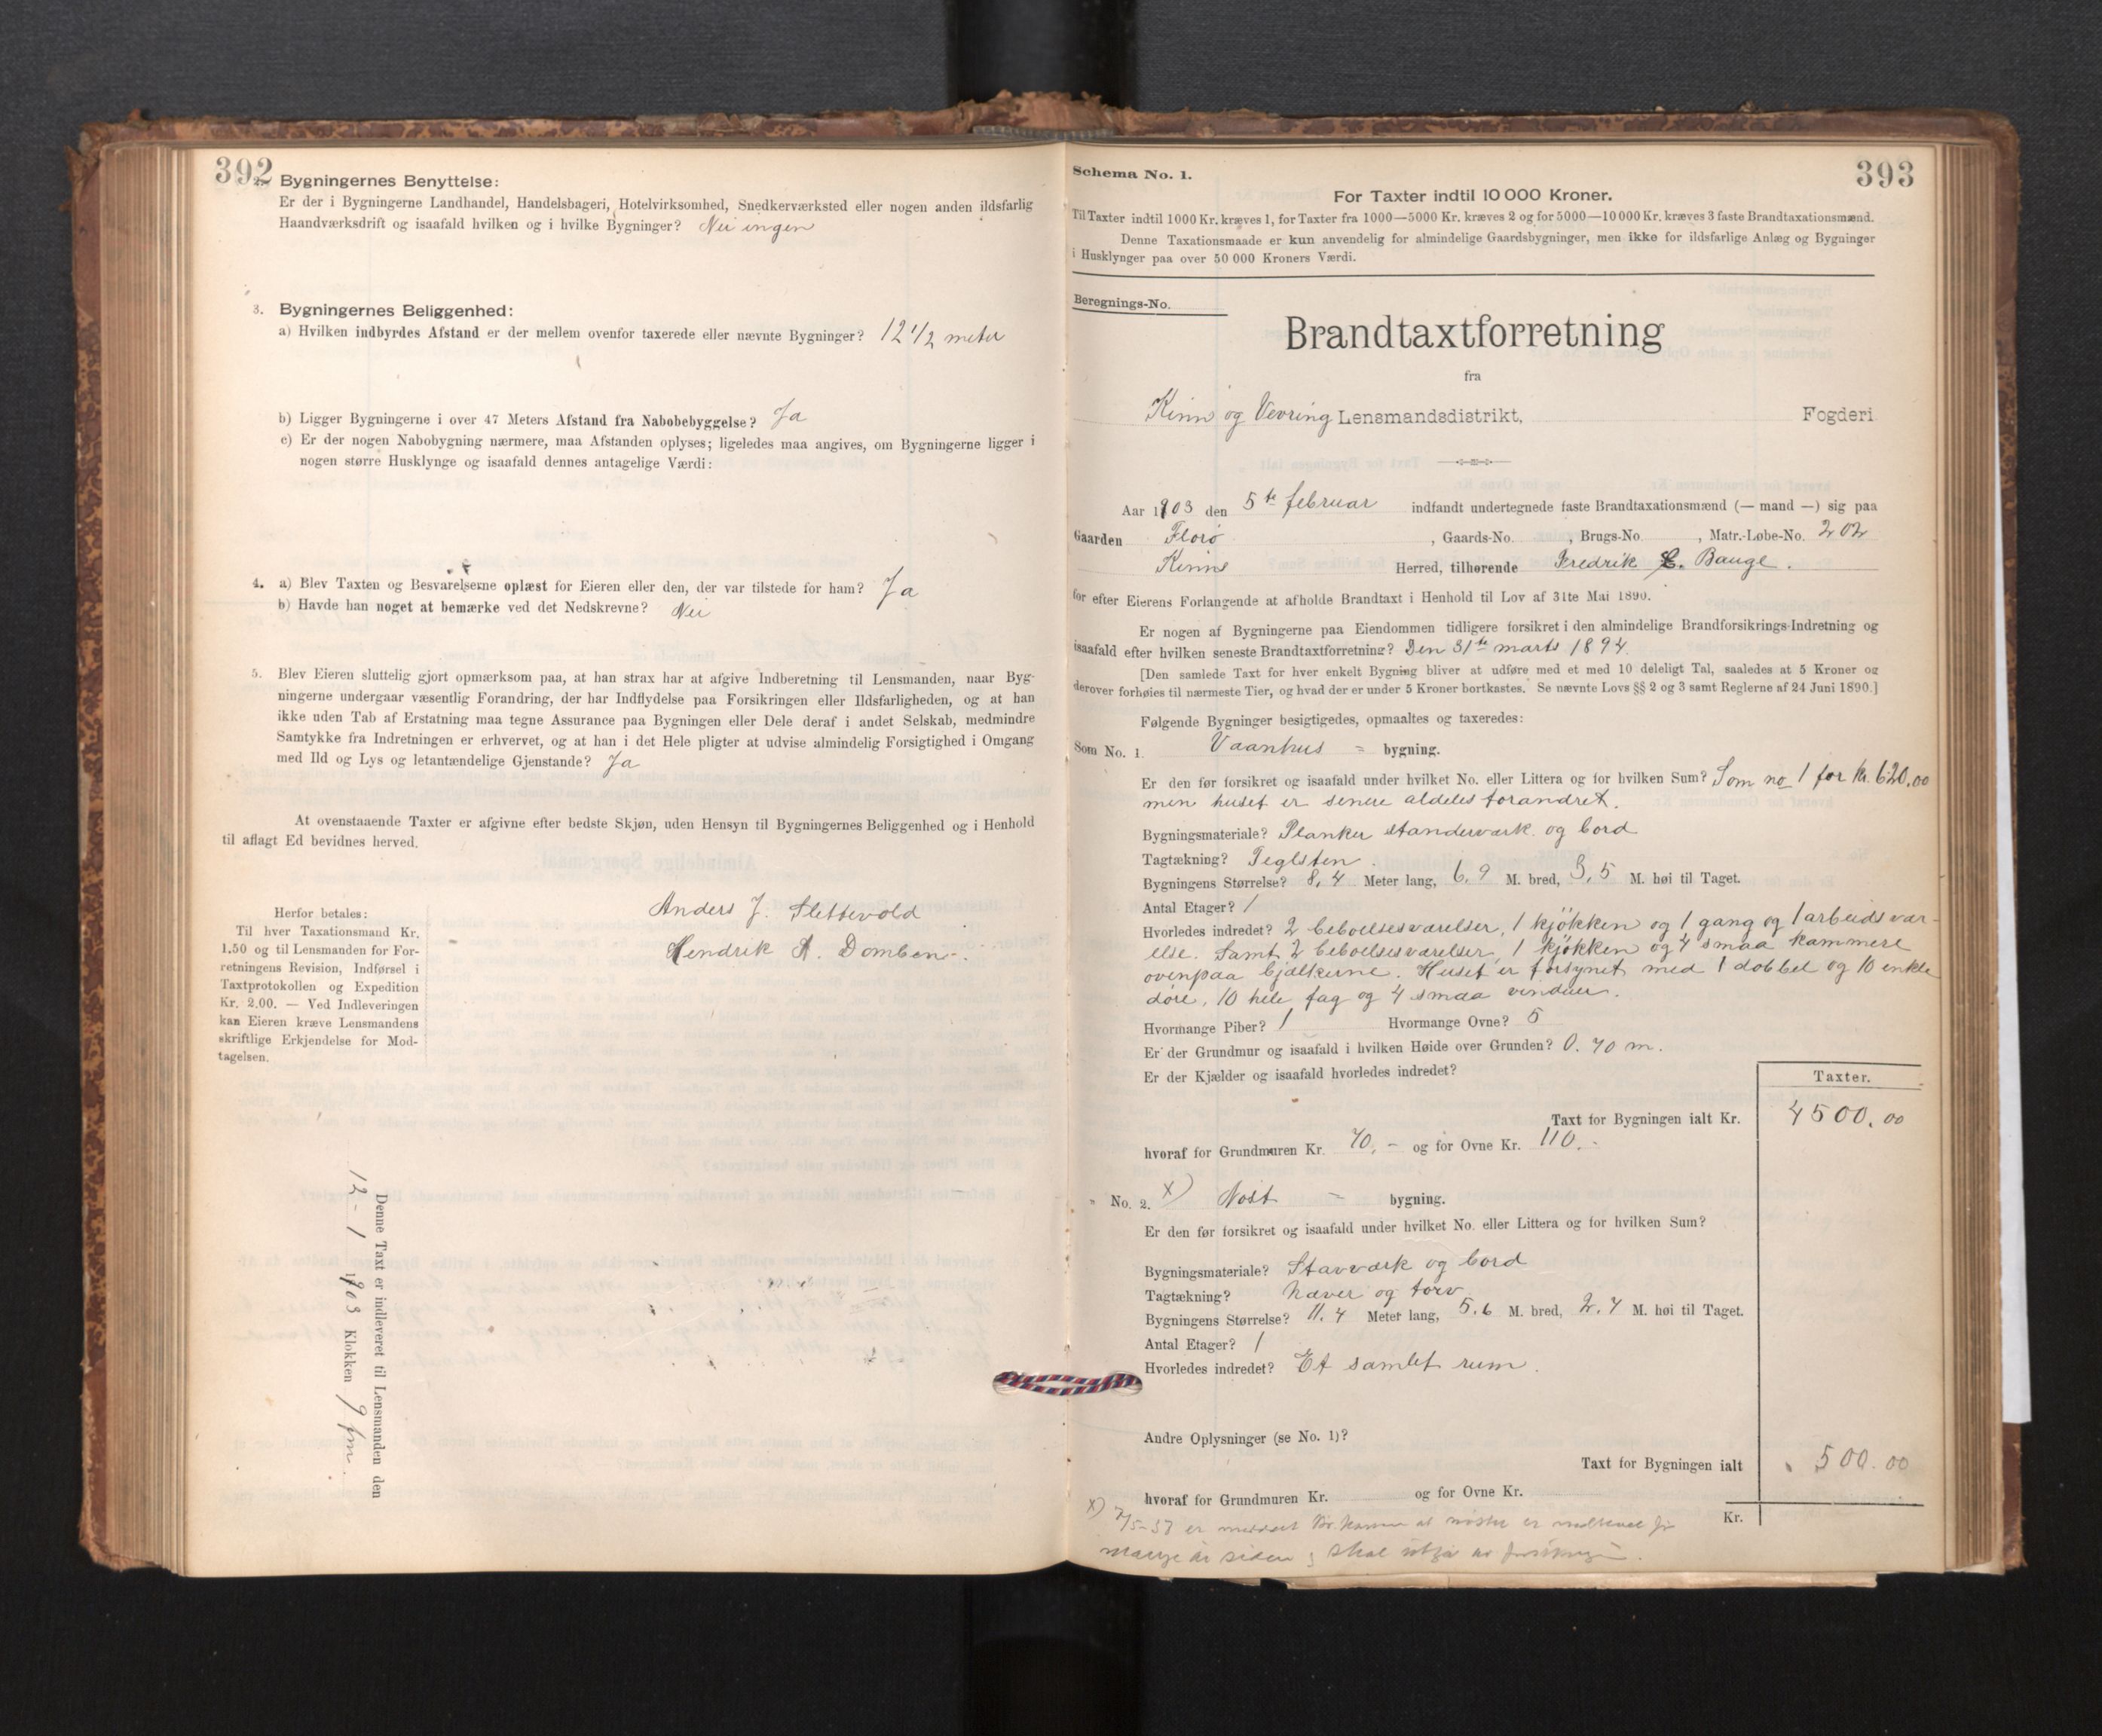 392
2. Bygningernes Benyttelse:
Er der i Bygningerne Landhandel, Handelsbageri, Hotelvirksomhed, Snedkerværksted eller nogen anden ildsfarlig
Haandværksdrift og isaafald hvilken og i hvilke Bygninger? Nei ingen
3. Bygningernes Beliggenhed:
a) Hvilken indbyrdes Afstand er der mellem ovenfor taxerede eller nævnte Bygninger? 12 1/2 meter
b) Ligger Bygningerne i over 47 Meters Afstand fra Nabobebyggelse? Ja
c) Er der nogen Nabobygning nærmere, maa Afstanden oplyses; ligeledes maa angives, om Bygningerne ligger i
nogen større Husklynge og isaafald dennes antagelige Værdi:
4. a) Blev Taxten og Besvarelserne oplæst for Eieren eller den, der var tilstede for ham? Ja
b) Havde han noget at bemærke ved det Nedskrevne? Nei
5. Blev Eieren sluttelig gjort opmærksom paa, at han strax har at afgive Indberetning til Lensmanden, naar Byg-
ningerne undergaar væsentlig Forandring, der har Indflydelse paa Forsikringen eller Ildsfarligheden, og at han
ikke uden Tab af Erstatning maa tegne Assurance paa Bygningen eller Dele deraf i andet Selskab, medmindre
Samtykke fra Indretningen er erhvervet, og at han i det Hele pligter at udvise almindelig Forsigtighed i Omgang
med Ild og Lys og letantændelige Gjenstande? Ja
At ovenstaaende Taxter er afgivne efter bedste Skjøn, uden Hensyn til Bygningernes Beliggenhed og i Henhold
til aflagt Ed bevidnes herved.
Anders J. Slettevold
Hendrik A. Domben.
Herfor betales:
Til hver Taxationsmand Kr.
1.50 og til Lensmanden for For-
retningens Revision, Indførsel i
Taxtprotokollen og Expedition
Kr. 2.00. — Ved Indleveringen
kan Eieren kræve Lensmandens
skriftlige Erkjendelse for Mod-
tagelsen.
Denne Taxt er indleveret til Lensmanden den
12 - 1 1903 Klokken 9 fm.
393
Schema No. 1.
For Taxter indtil 10 000 Kroner.
Til Taxter indtil 1000 Kr. kræves 1, for Taxter fra 1000—5000 Kr. kræves 2 og for 5000—10 000 Kr. kræves 3 faste Brandtaxationsmænd.
Denne Taxationsmaade er kun anvendelig for almindelige Gaardsbygninger, men ikke for ildsfarlige Anlæg og Bygninger
i Husklynger paa over 50 000 Kroners Værdi.
Beregnings-No.
Brandtaxtforretning
fra
Kinn og Vevring Lensmandsdistrikt, Fogderi
Aar 1903 den 5te februar indfandt undertegnede faste Brandtaxationsmænd (— mand —) sig paa
Gaarden Florø , Gaards-No. , Brugs-No. , Matr.-Løbe-No. 202
Kinns Herred, tilhørende Fredrik E. Bauge.
for efter Eierens Forlangende at afholde Brandtaxt i Henhold til Lov af 31te Mai 1890.
Er nogen af Bygningerne paa Eiendommen tidligere forsikret i den almindelige Brandforsikrings-Indretning og
isaafald efter hvilken seneste Brandtaxtforretning? Den 31te marts 1894.
[Den samlede Taxt for hver enkelt Bygning bliver at udføre med et med 10 deleligt Tal, saaledes at 5 Kroner og
derover forhøies til nærmeste Tier, og hvad der er under 5 Kroner bortkastes. Se nævnte Lovs §§ 2 og 3 samt Reglerne af 24 Juni 1890.]
Følgende Bygninger besigtigedes, opmaaltes og taxeredes:
Som No. 1. Vaanhus = bygning.
Er den før forsikret og isaafald under hvilket No. eller Littera og for hvilken Sum? Som no 1 for kr. 620,00
men huset er senere aldeles forandret.
Bygningsmateriale? Planker standerværk og bord
Tagtækning? Teglsten.
Bygningens Størrelse? 8,4 Meter lang, 6,9 M. bred, 3,5 M. høi til Taget.
Antal Etager? 1
Hvorledes indredet? 2 beboelsesværelser, 1 kjøkken og 1 gang og 1 arbeidsvær-
else. Samt 2 beboelsesværelser, 1 kjøkken og 4 smaa kammere
ovenpaa bjælkerne. Huset er forsynet med 1 dobbel og 10 enkle
døre, 10 hele fag og 4 smaa vinduer.
Hvormange Piber? 1 Hvormange Ovne? 5
Er der Grundmur og isaafald i hvilken Høide over Grunden? 0.70 m.
Er der Kjælder og isaafald hvorledes indredet?
Taxter.
Taxt for Bygningen ialt Kr. 4500.00
hvoraf for Grundmuren Kr. 70.- og for Ovne Kr. 110.-
" No. 2. x) Nøst = bygning.
Er den før forsikret og isaafald under hvilket No. eller Littera og for hvilken Sum?
Bygningsmateriale? Stavværk og bord
Tagtækning? Næver og torv
Bygningens Størrelse? 11.4 Meter lang, 5.6 M. bred, 2.4 M. høi til Taget.
Antal Etager? 1
Hvorledes indredet? Et samlet rum.
Andre Oplysninger (se No. 1)?
Taxt for Bygningen ialt 500.00
hvoraf for Grundmuren Kr. og for Ovne Kr.
Kr.
x) 7/5-37 er meldt at nøstet er for
mange år siden skal utgå av